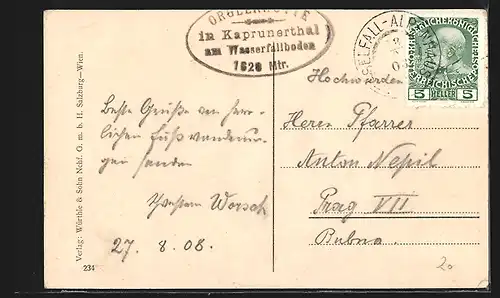 ORGLERHÜTTE
in Kaprunerthal
am Wasserfallboden
1620 Mtr.
KESSELFALL-ALPENHAUS
5 HELLER 5
Hochwürden
Herrn Pfarrer
Anton Nepil
Prag VII
Bubna
Beste Grüße von herr-
lichen Fußwanderun-
gen senden
Worsch
27. 8. 08.
Verlag: Würthle & Sohn Nchf. G. m. b. H. Salzburg—Wien.
234
20